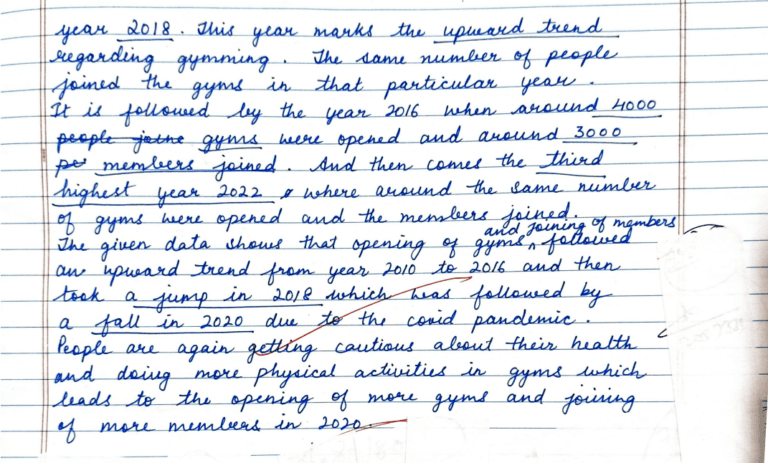 year 2018. This year marks the upward trend
regarding gymming. The same number of people
joined the gyms in that particular year.
It is followed by the year 2016 when around 4000
people joine gyms were opened and around 3000
pe members joined. And then comes the third
highest year 2022 where around the same number
of gyms were opened and the members joined.
and joining of members
The given data shows that opening of gyms followed
an upward trend from year 2010 to 2016 and then
took a jump in 2018 which was followed by
a fall in 2020 due to the covid pandemic.
People are again getting cautious about their health
and doing more physical activities in gyms which
leads to the opening of more gyms and joining
of more members in 2020.